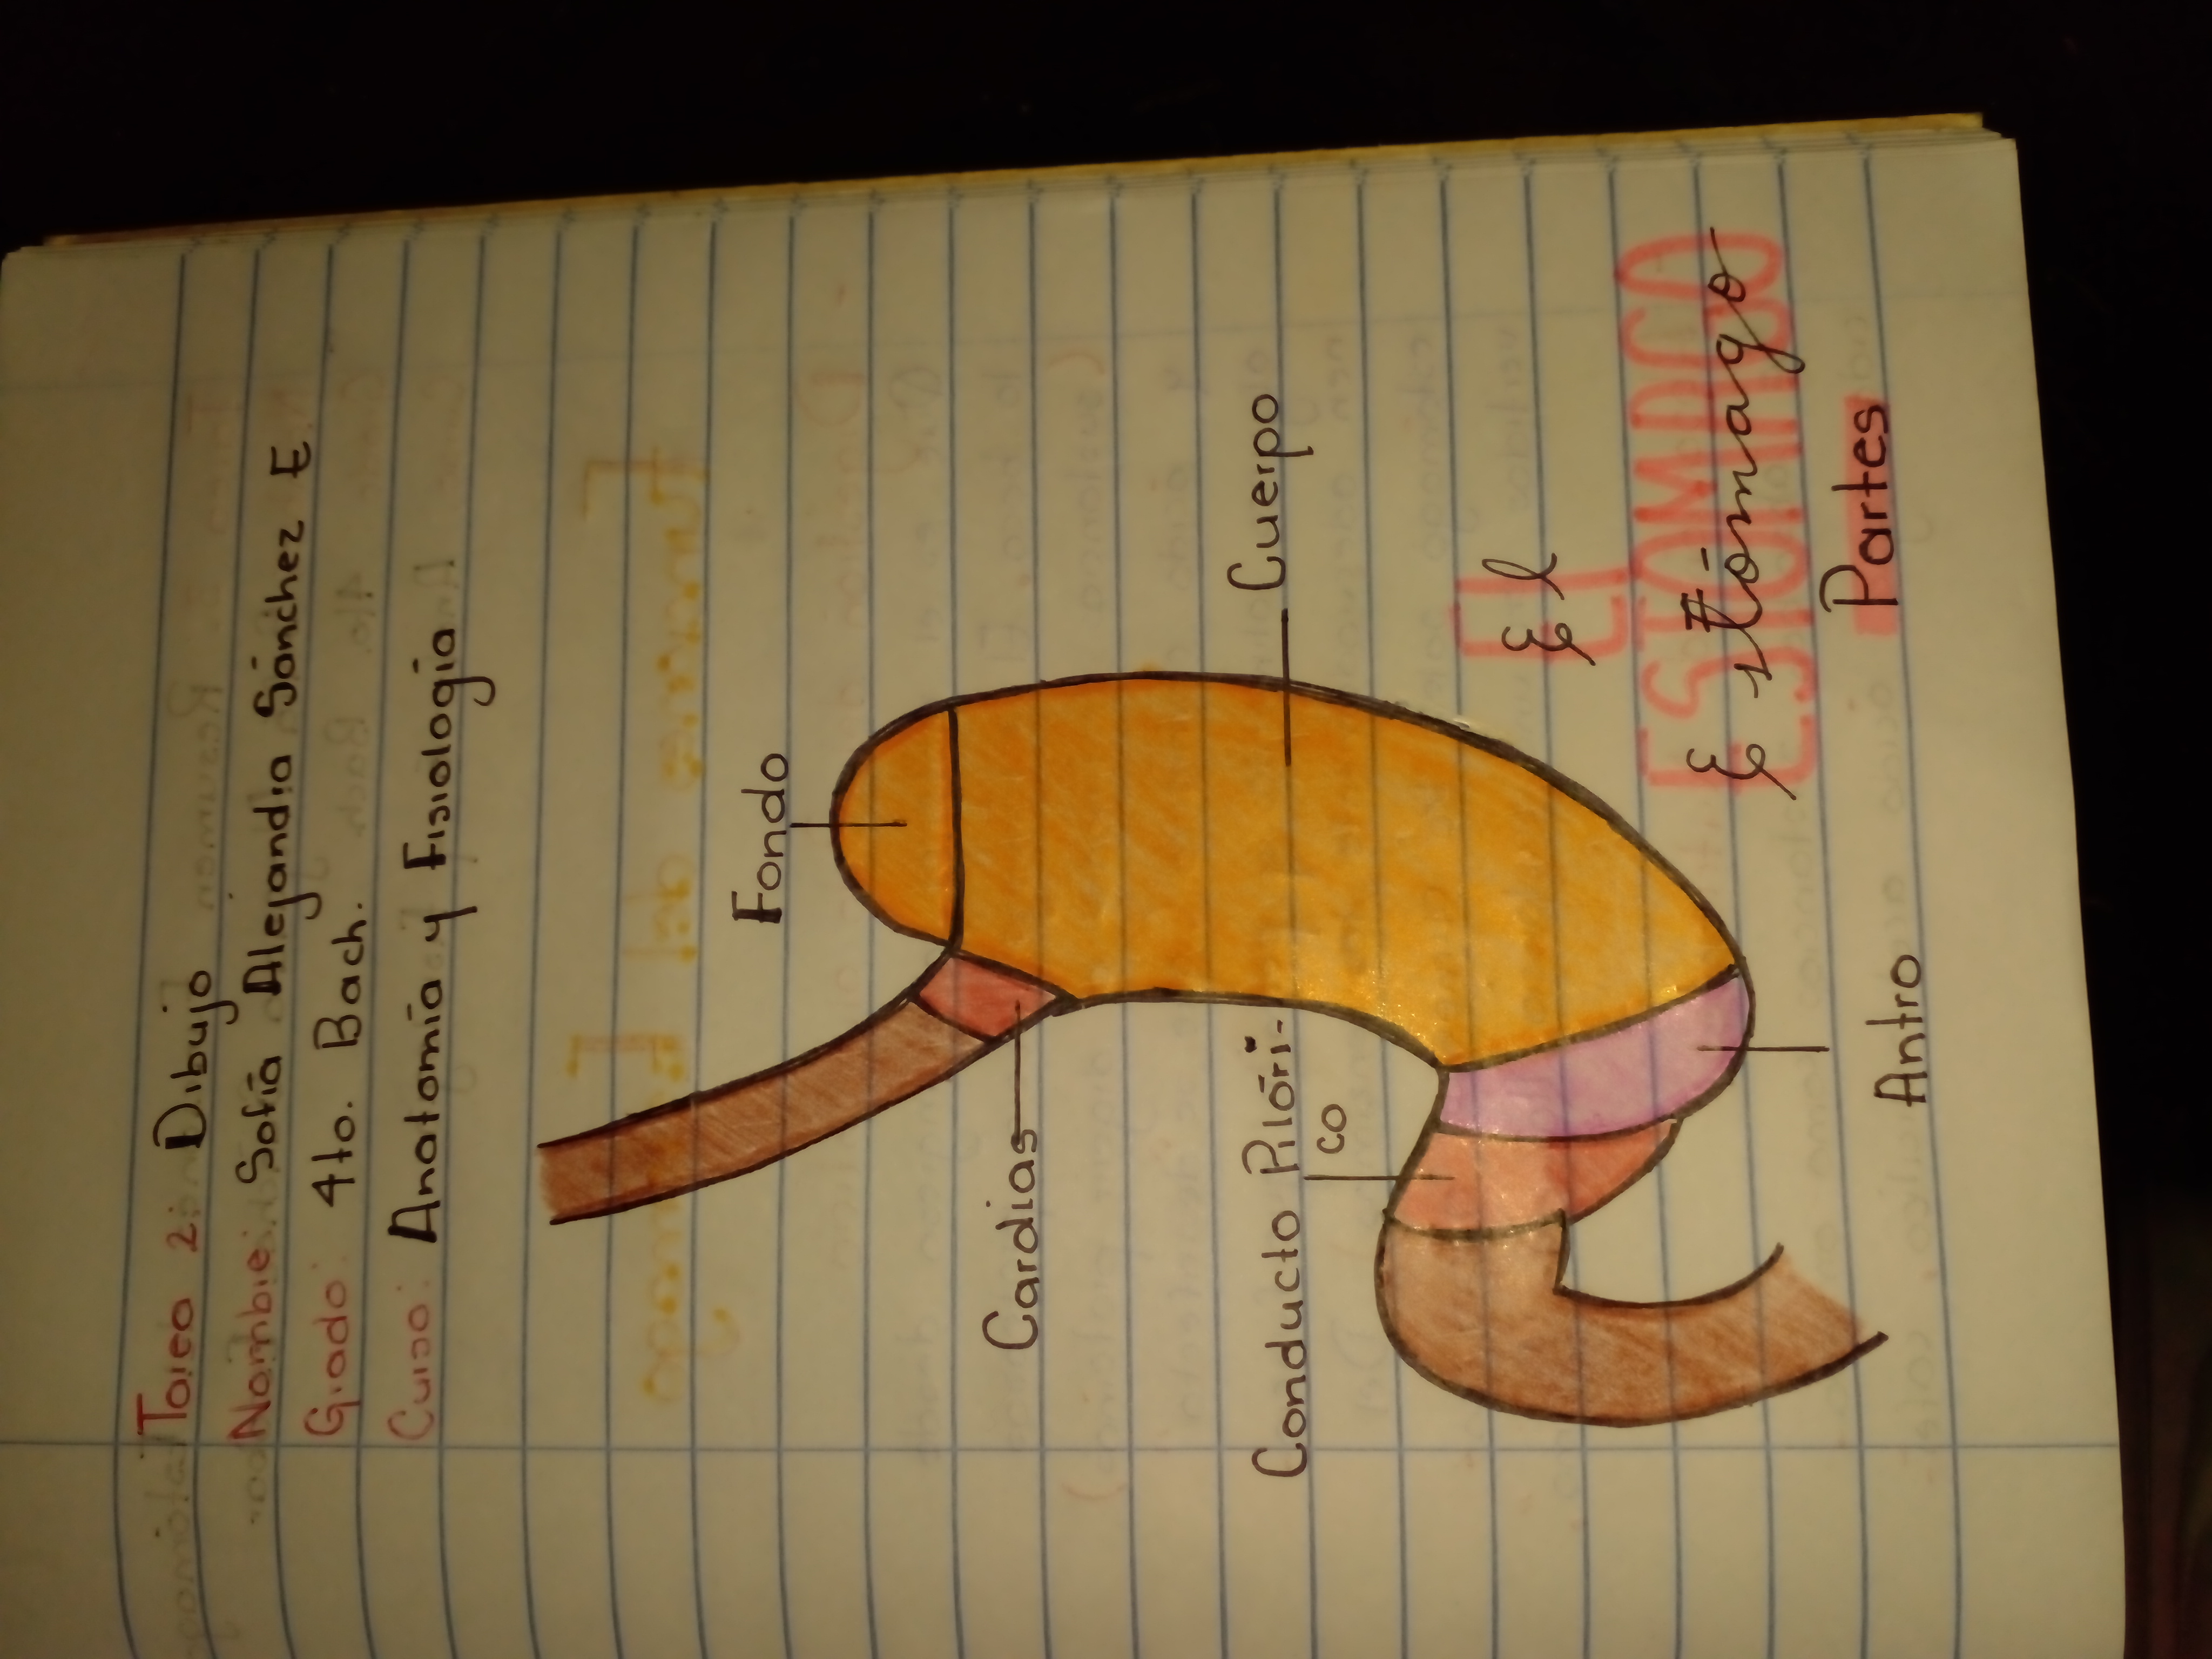 Tarea 2: Dibujo
Nombre: Sofía Alejandra Sánchez E
Grado: 4to. Bach.
Curso: Anatomía y Fisiología
Fondo
Cardias
Cuerpo
Conducto Pilóri-
co
El
El
ESTOMAGO
Estómago
Partes
Antro